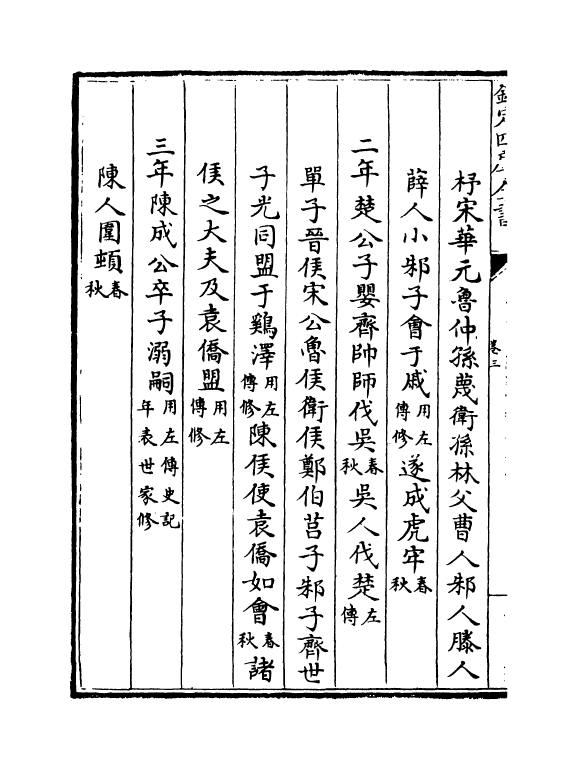 欽定四庫全書
卷三
杼宋華元魯仲孫蔑衛孫林父曹人邾人滕人
薛人小邾子會于戚用左傳修遂成虎牢春秋
二年楚公子嬰齊帥師伐吳春秋吳人伐楚左傳
單子晉侯宋公魯侯衛侯鄭伯莒子邾子齊世
子光同盟于鷄澤用左傳修陳侯使袁僑如會春秋諸
侯之大夫及袁僑盟用左傳修
三年陳成公卒子溺嗣用左傳史記年表世家修
陳人圍頓春秋